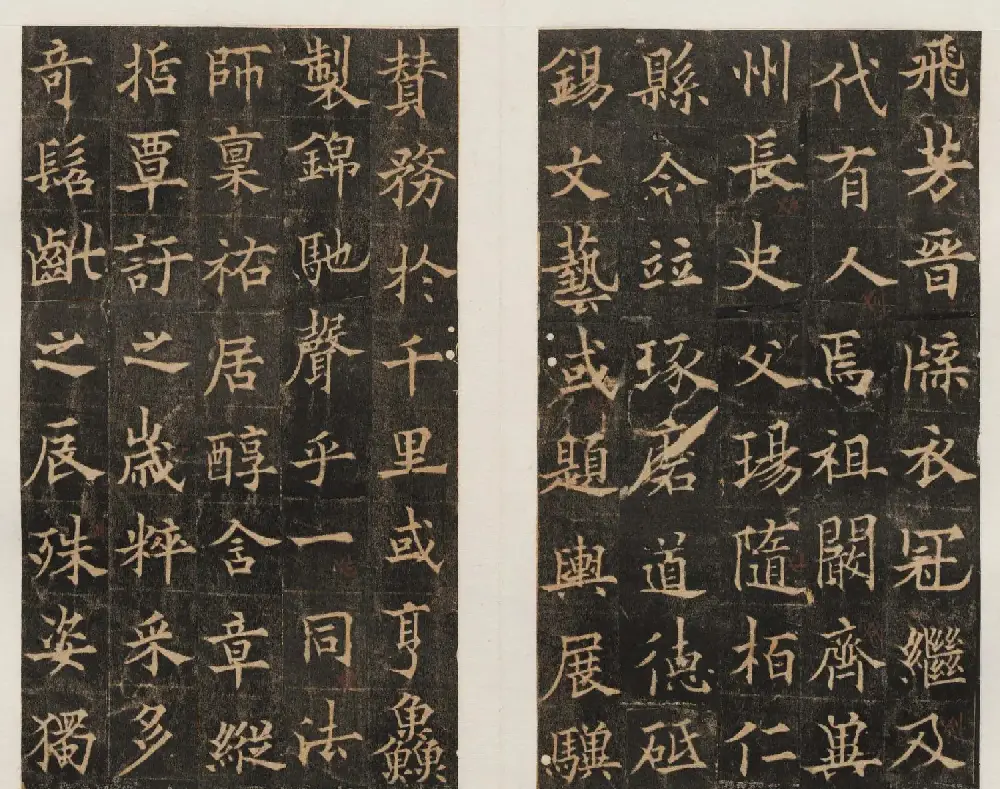 飛芳晉牒衣冠繼及
代有人焉祖闞齊冀
州長史父瑒隨栢仁
縣令竝琢磨道德砥
錫文藝或題輿展驥
贊務於千里或亨鱻
製錦馳聲乎一同法
師稟祐居醇含章縱
哲覃訏之歲粹采多
奇髫齔之辰殊姿獨